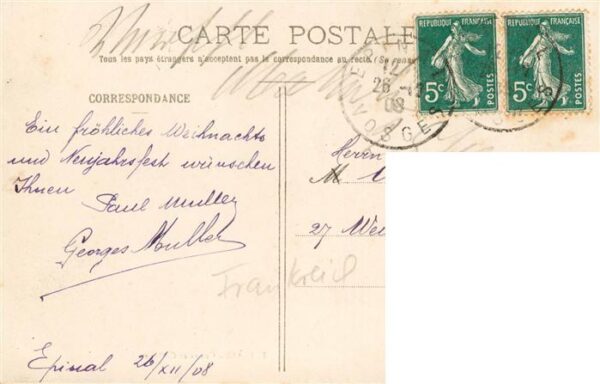 CARTE POSTALE
Tous les pays étrangers n'acceptent pas la correspondance au recto. (Se rense
CORRESPONDANCE
RÉPUBLIQUE FRANÇAISE
5c POSTES
RÉPUBLIQUE FRANÇAISE
5c POSTES
26
08
VOSGES
Ein fröhliches Weihnachts
und Neujahrsfest wünschen
Ihnen
Paul Muller
Georges Muller
Herrn
M
27 Wei
Frankreich
Epinal 26/XII/08